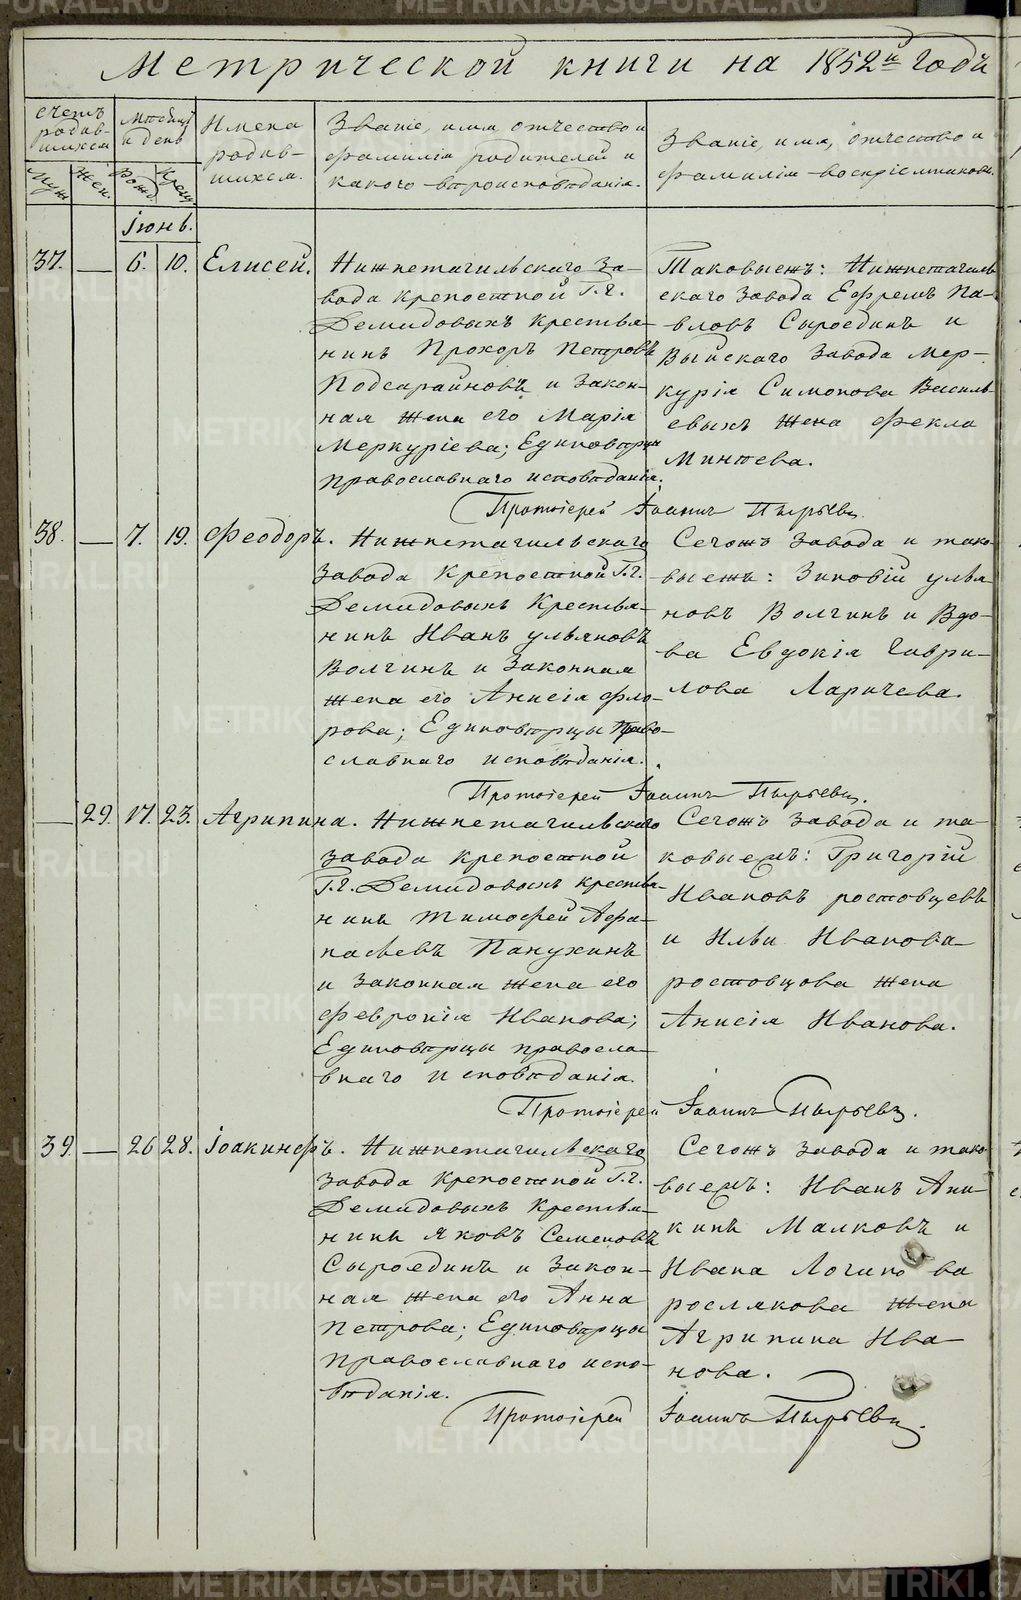 Метрической книги на 1852й годъ
счетъ родив-
шихся
Муж
Жен.
Мѣсяцъ
и день
Рожд.
Крещ.
Имена
родив-
шихся.
Званіе, имя, отчество и
фамилія родителей и
какого вѣроисповѣданія.
Званіе, имя, отчество и
фамилія воспріемниковъ.
Іюнь.
37. — 6. 10. Елисей.
Нижнетагильскаго За-
вода крепостной Г.г.
Демидовыхъ крестья-
нинъ Прохоръ Петровъ
Подсарайновъ и закон-
ная жена его Марія
Меркуріева; Единовѣрцы
православнаго исповѣданія.
Таковыежъ: Нижнетагиль-
скаго Завода Ефремъ Па-
вловъ Сыроединъ и
Выйскаго Завода Мер-
курія Симонова Василь-
евыхъ жена Фекла
Минѣева.
Протоіерей Іоаннъ Пырьевъ.
38. — 7. 19. Феодоръ.
Нижнетагильскаго
Завода Крепостной Г.г.
Демидовыхъ Крестья-
нинъ Иванъ ульяновъ
Волгинъ и Законная
жена его Анисія Фло-
рова; Единовѣрцы Право-
славнаго исповѣданія.
Сегожъ завода и тако-
выежъ: Зиновій улья-
новъ Волгинъ и Вдо-
ва Евдокія Гаври-
лова Ларичева.
Протоіерей Іоаннъ Пырьевъ.
— 29. 17. 23. Агрипина.
Нижнетагильскаго
завода крепостной
Г.г. Демидовыхъ крестья-
нинъ Тимофей Афа-
насьевъ Панухинъ
и законная жена его
Февронія Иванова;
Единовѣрцы правосла-
внаго исповѣданія.
Сегожъ завода и та-
ковыежъ: Григорій
Ивановъ ростовцевъ
и Ильи Иванова
ростовцова жена
Анисія Иванова.
Протоіерей Іоаннъ Пырьевъ.
39. — 26 28. Іоакинфъ.
Нижнетагильскаго
завода Крепостной Г.г.
Демидовыхъ Крестья-
нинъ Яковъ Семеновъ
Сыроединъ и Закон-
ная жена его Анна
Петрова; Единовѣрцы
Православнаго испо-
вѣданія.
Сегожъ завода и тако-
выежъ: Иванъ Ани-
кинъ Малковъ и
Ивана Логинова
рослякова жена
Агрипина Ива-
нова.
Протоіерей Іоаннъ Пырьевъ.
METRIKI.GASO-URAL.RU